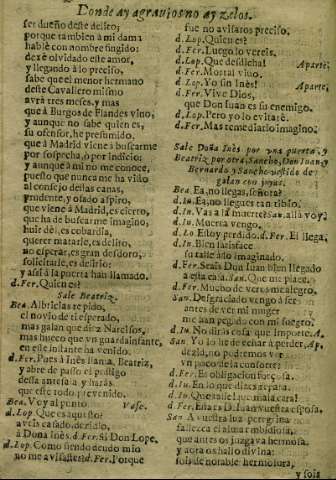 Donde ay agravios no ay zelos.
ser dueño deste delito;
porque tambien a mi dama
hablè con nombre fingido:
dexè olvidado este amor,
y llegando à lo preciso,
sabe que el menor hermano
deste Cavallero mismo
avrà tres meses, y mas
que à Burgos de Flandes vino,
y aunque no sabe quien es,
su ofensor, he presumido,
que à Madrid viene à buscarme
por sospecha, ò por indicio:
y aunque à mi no me conoce,
puesto que nunca me ha visto
al consejo de las canas,
prudente, y osado aspiro,
que viene à Madrid, es cierto,
que ha de buscarme imagino,
huir dèl, es cobardia,
querer matarle, es delito,
no esperar, es gran desdoro,
solicitarle, es delirio;
y assi à la puerta han llamado.
d.Fer. Quien es?
Sale Beatriz.
Bea. Albricias te pido,
el novio de ti esperado,
mas galan que diez Narcisos,
mas hueco que un guardainfante,
en este instante ha venido.
d.Fer. Pues à Inès llama, Beatriz,
y abre de passo el postigo
desta antesala y haràs
que este todo prevenido.
Bea. Voy al punto. Vase.
d.Lop. Que es aquesto?
aveis casado, dezidlo,
à Doña Inès? d.Fer. Si Don Lope.
d.Lop. Como siendo deudo mio
no me avisastes? d.Fer. Porque
fue no avisaros preciso.
d.Lop. Quien es?
d.Fer. Luego lo vereis.
d.Lop. Que desdicha! Aparte.
d.Fer. Mortal vivo.
d.Lop. Yo sin Inès! Aparte.
d.Fer. Vive Dios,
que Don Juan es su enemigo.
d.Lop. Pero yo lo evitarè.
d.Fer. Mas remediarlo imagino.
Sale Doña Inès por una puerta, y
Beatriz por otra, Sancho, Don Juan, y
Bernardo y Sancho vestido de
galan con joyas.
Bea. Ea, no llegas, señora?
d.Ju. Ea, no llegues tan tibio.
d.In. Vas à la muerte? San. allà voy;
d.In. Muerta vengo.
d.Lo. Estoy perdido. d.Fer. El llega.
d.In. Bien satisface
su talle à lo imaginado.
d.Fer. Seais Don Juan bien llegado
à esta casa. San. Que me place.
d.Fer. Mucho de veros me alegro.
San. Desgraciado vengo à ser
antes de ver mi muger
me han pegado con mi suegro.
d.In. No dirà cosa que importe. A.
San. Yo lo he de echar à perder, Ap.
dezid, no podremos ver
un poco de la consorte?
d.Fer. Es obligacion forçosa.
d.Ju.
d.In. Que talle! que mala cara!
d.Fer. Estais D. Juan vuestra esposa.
San. A vuestra luz peregrina
fallezca el alma embidiosa,
que antes os juzgava hermosa,
y aora os hallo divina:
sois de notable hermosura,
y sois